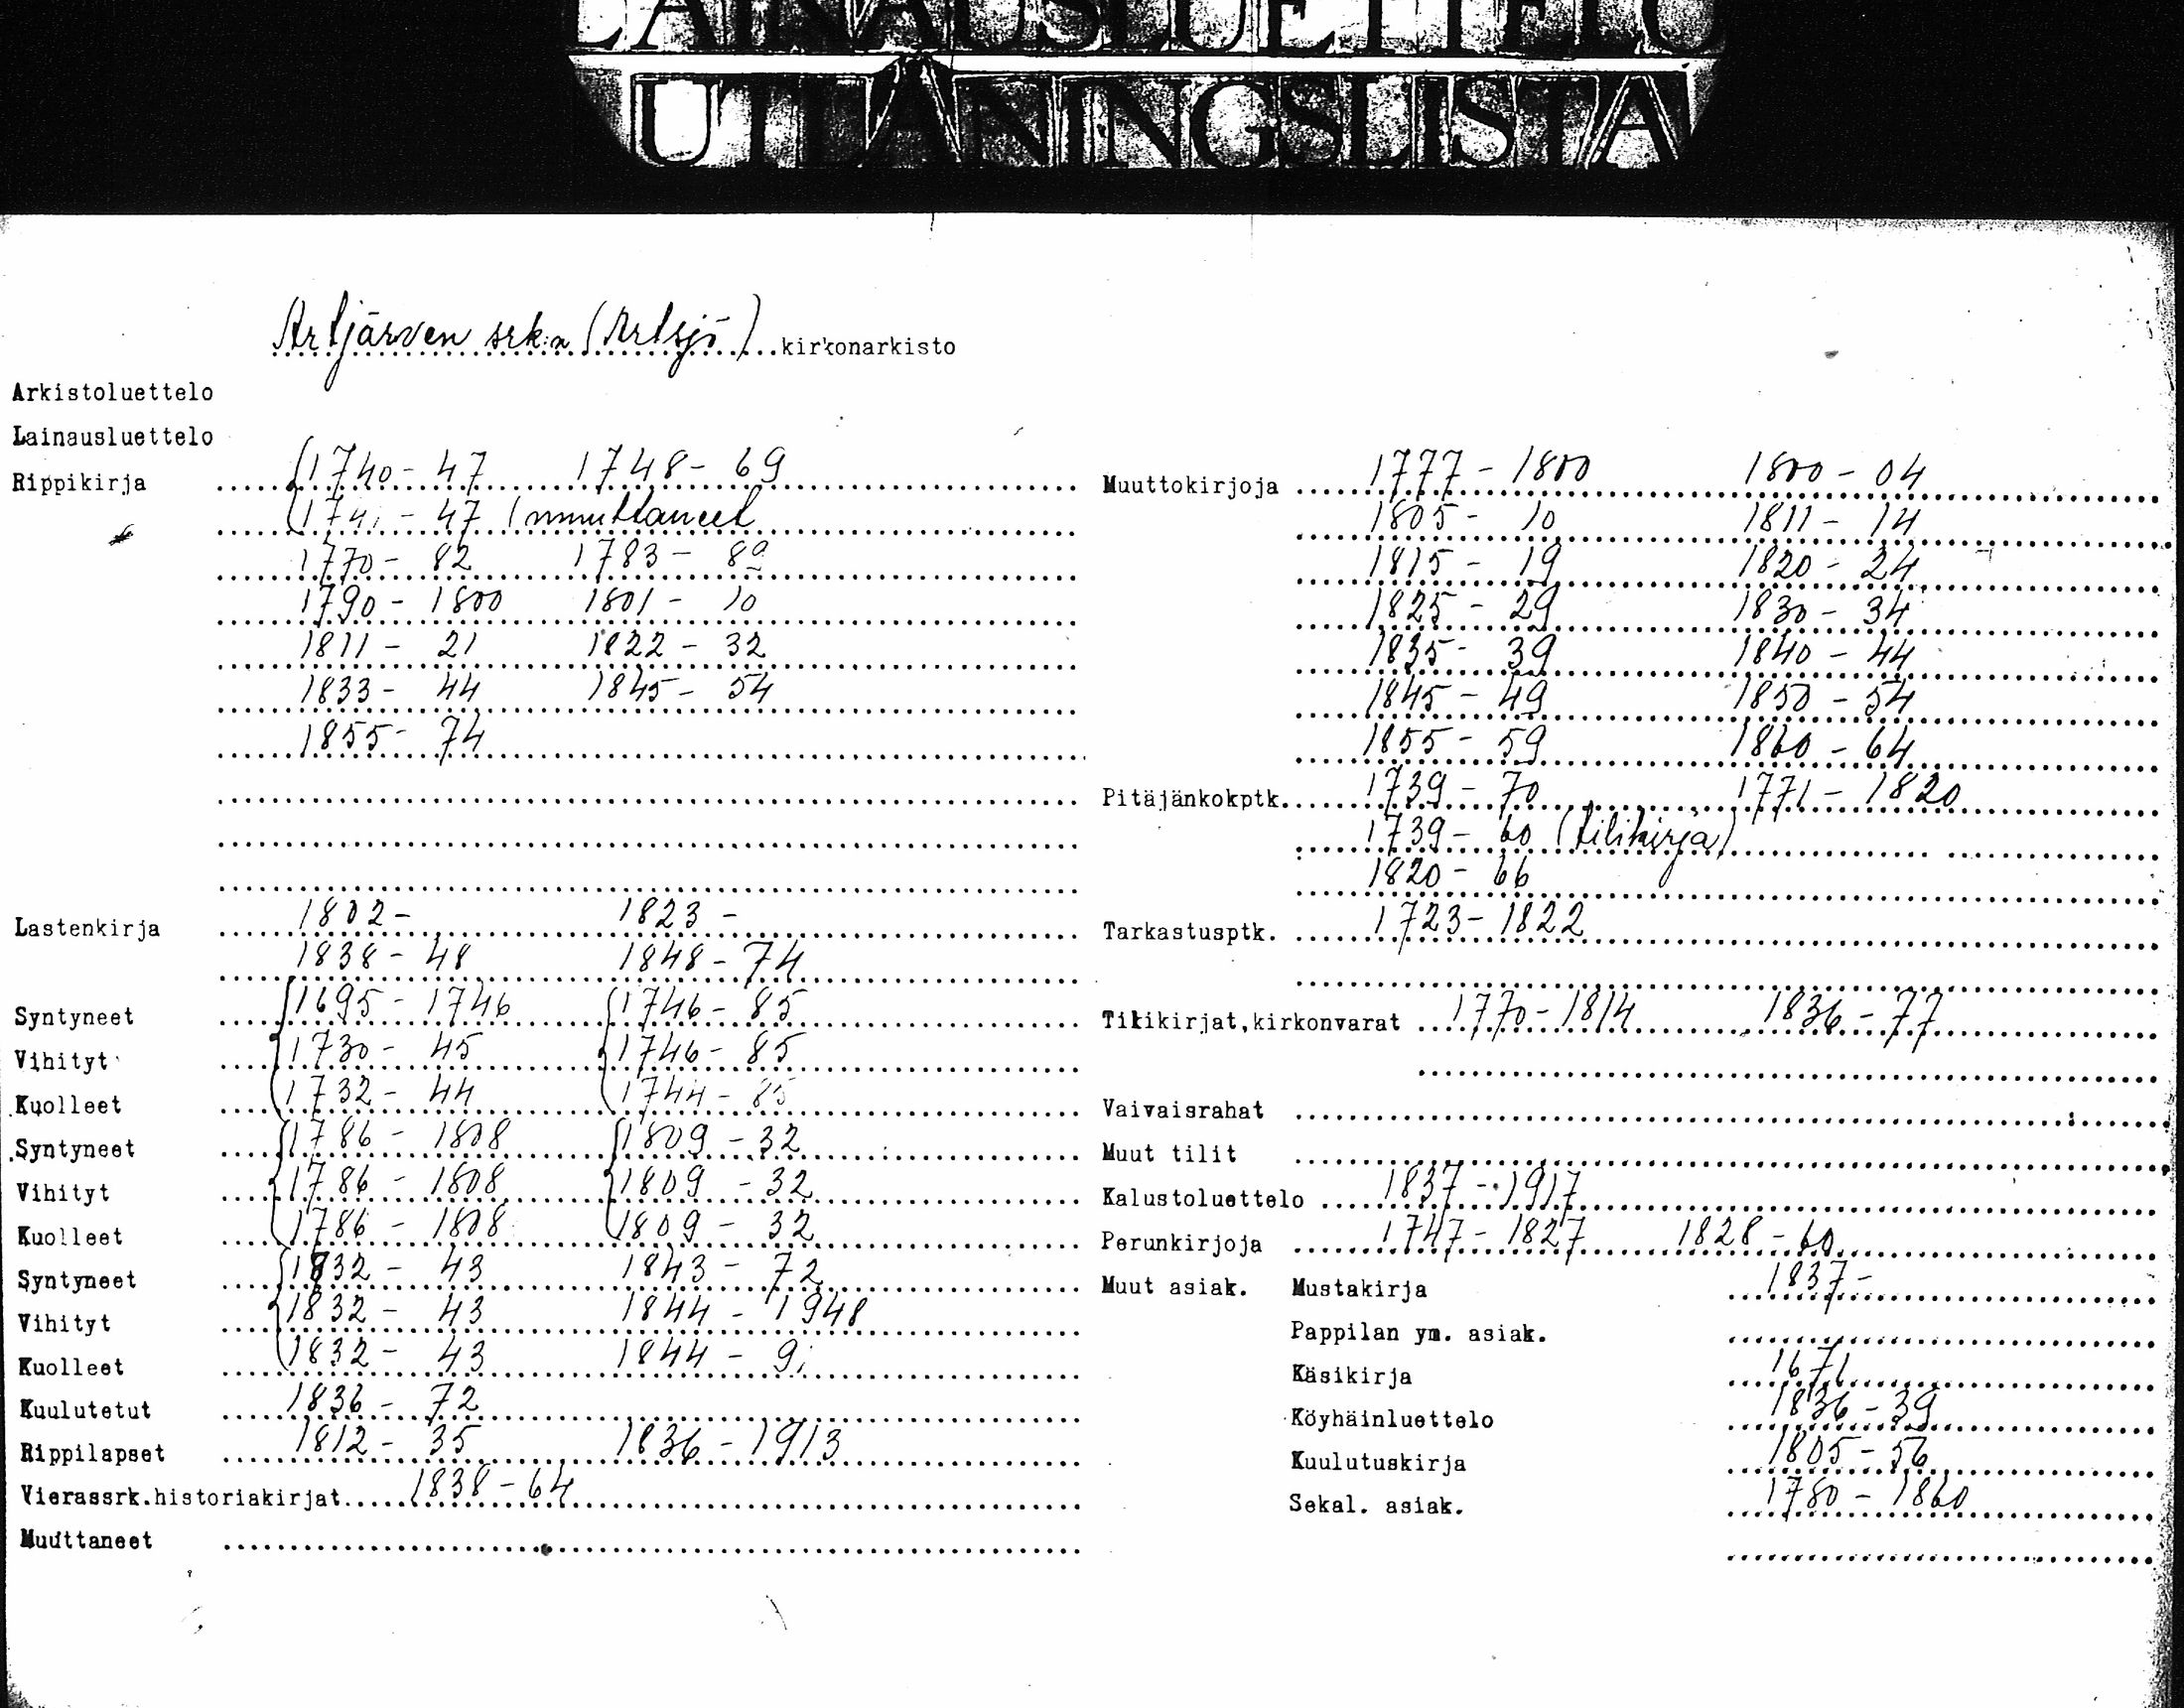 LAINAUSLUETTELO
UTLÅNINGSLISTA
Artjärven srk:n (Artsjö) kirkonarkisto
Arkistoluettelo
Lainausluettelo
Rippikirja 1740-47 1748-69
- 47 (muuttaneet
1770-82 1783-89
1790-1800 1801-10
1811-21 1822-32
1833-44 1845-54
1855-74
Lastenkirja 1802- 1823-
1838-48 1848-74
Syntyneet 1695-1746 1746-85
Vihityt 1730-45 1746-85
Kuolleet 1732-44 1744-85
Syntyneet 1786-1808 1809-32
Vihityt 1786-1808 1809-32
Kuolleet 1786-1808 1809-32
Syntyneet 1832-43 1843-72
Vihityt 1832-43 1844-1948
Kuolleet 1832-43 1844-
Kuulutetut 1836-72
Rippilapset 1812-35 1836-1913
Vierassrk.historiakirjat 1838-64
Muuttaneet
Muuttokirjoja 1777-1800 1800-04
1805-10 1811-14
1815-19 1820-24
1825-29 1830-34
1835-39 1840-44
1845-49 1850-54
1855-59 1860-64
Pitäjänkokptk. 1739-70 1771-1820
1739-60 (tilikirja)
1820-66
Tarkastusptk. 1723-1822
Tilikirjat,kirkonvarat 1770-1814 1836-77
Vaivaisrahat
Muut tilit
Kalustoluettelo 1837-1917
Perunkirjoja 1747-1827 1828-60
Muut asiak. Mustakirja 1837-
Pappilan ym. asiak.
Käsikirja 1671
Köyhäinluettelo 1836-39
Kuulutuskirja 1805-56
Sekal. asiak. 1780-1860